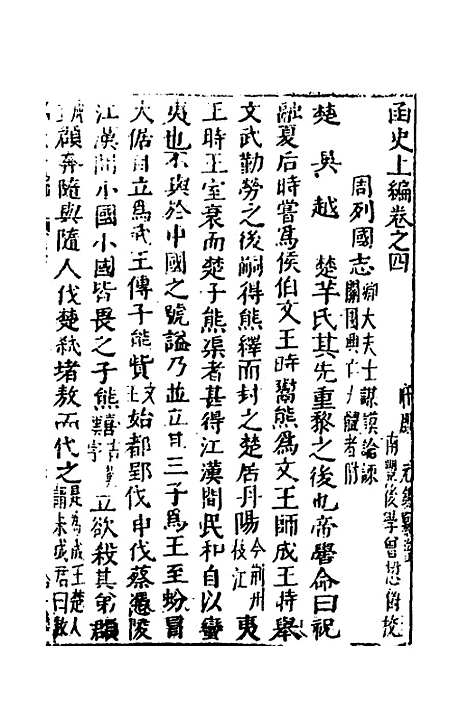 函史上編卷之四
南豐後學曾懋爵校
周列國志卿大夫士謀謨論諫關國興亡大體者附
楚 吳 越 楚芊氏其先重黎之後也帝嚳命曰祝
融夏后時嘗爲侯伯文王時鬻熊爲文王師成王時舉
文武勤勞之後嗣得熊繹而封之楚居丹陽今荊州枝江夷
王時王室衰而楚子熊渠者甚得江漢間民和自以蠻
夷也不與於中國之號謚乃並立其三子爲王至蚡冒
大倨自立爲武王傳子熊貲文王始都郢伐申伐蔡憑陵
江漢間小國小國皆畏之子熊囏立欲殺其弟頵
頵奔隨與隨人伐楚弒堵敖而代之是爲成王楚人謂未成君曰敖